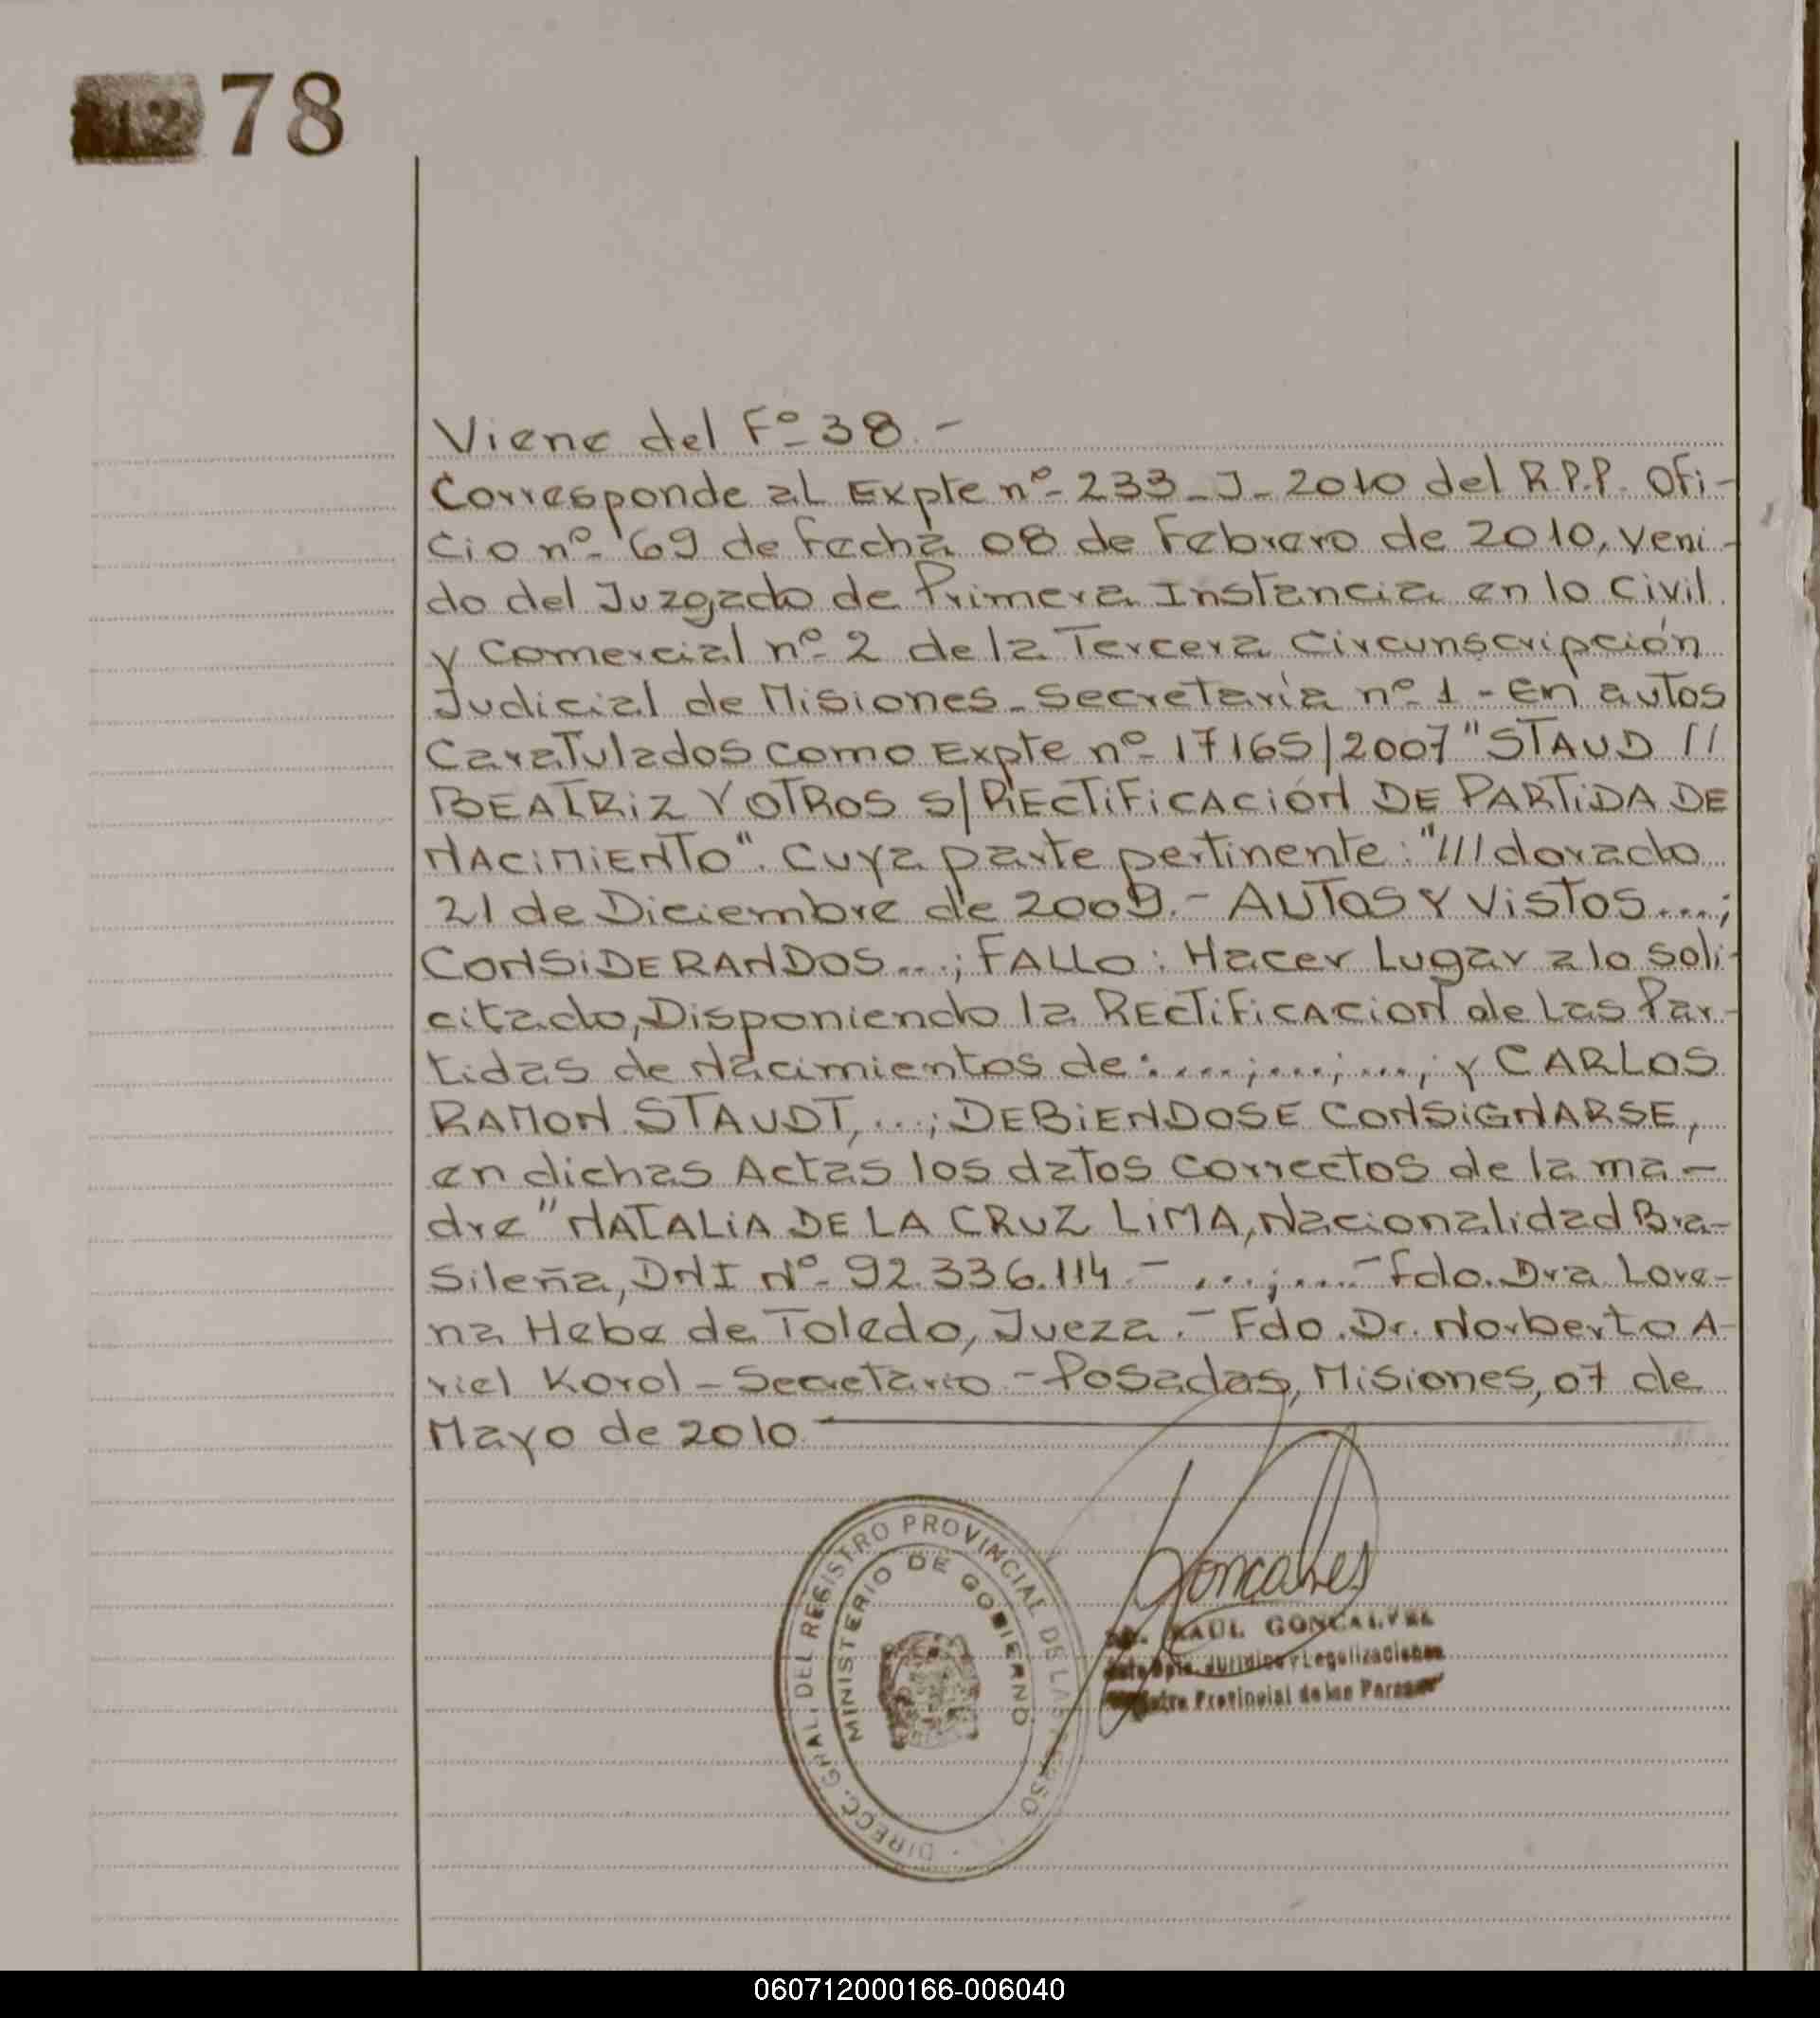 78
Viene del Fº 38.-
Corresponde al Expte nº 233-J-2010 del R.P.P. Ofi-
cio nº 69 de Fecha 08 de Febrero de 2010, veni-
do del Juzgado de Primera Instancia en lo Civil
y Comercial nº 2 de la Tercera Circunscripción
Judicial de Misiones-Secretaría nº 1 - En autos
Caratulados como Expte nº 17165/2007 "STAUD //
BEATRIZ Y OTROS S/RECTIFICACIÓN DE PARTIDA DE
NACIMIENTO". Cuya parte pertinente: "///dorado
21 de Diciembre de 2009.- AUTOS Y VISTOS...;
CONSIDERANDOS...; FALLO: Hacer Lugar a lo soli-
citado, Disponiendo la RECTIFICACION de Las Par-
tidas de Nacimientos de:....;...;...; y CARLOS
RAMON STAUDT,...; DEBIENDOSE CONSIGNARSE,
en dichas Actas los datos correctos de la ma-
dre "NATALIA DE LA CRUZ LIMA, Nacionalidad Bra-
sileña, DNI Nº 92.336.114.- ...;...- Fdo. Dra Lore-
na Hebe de Toledo, Jueza.- Fdo. Dr. Norberto A-
riel Korol - Secretario - Posadas, Misiones, 07 de
Mayo de 2010
DIRECC. GRAL. DEL REGISTRO PROVINCIAL DE LAS
MINISTERIO DE GOBIERNO
Goncalves
RAUL GONCALVES
Dpto. Jurídico y Legalizaciones
Provincial de las Personas
060712000166-006040